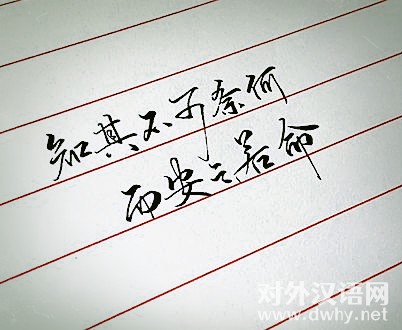 知其不可奈何
而安之若命
对外汉语网
www.dwhy.net